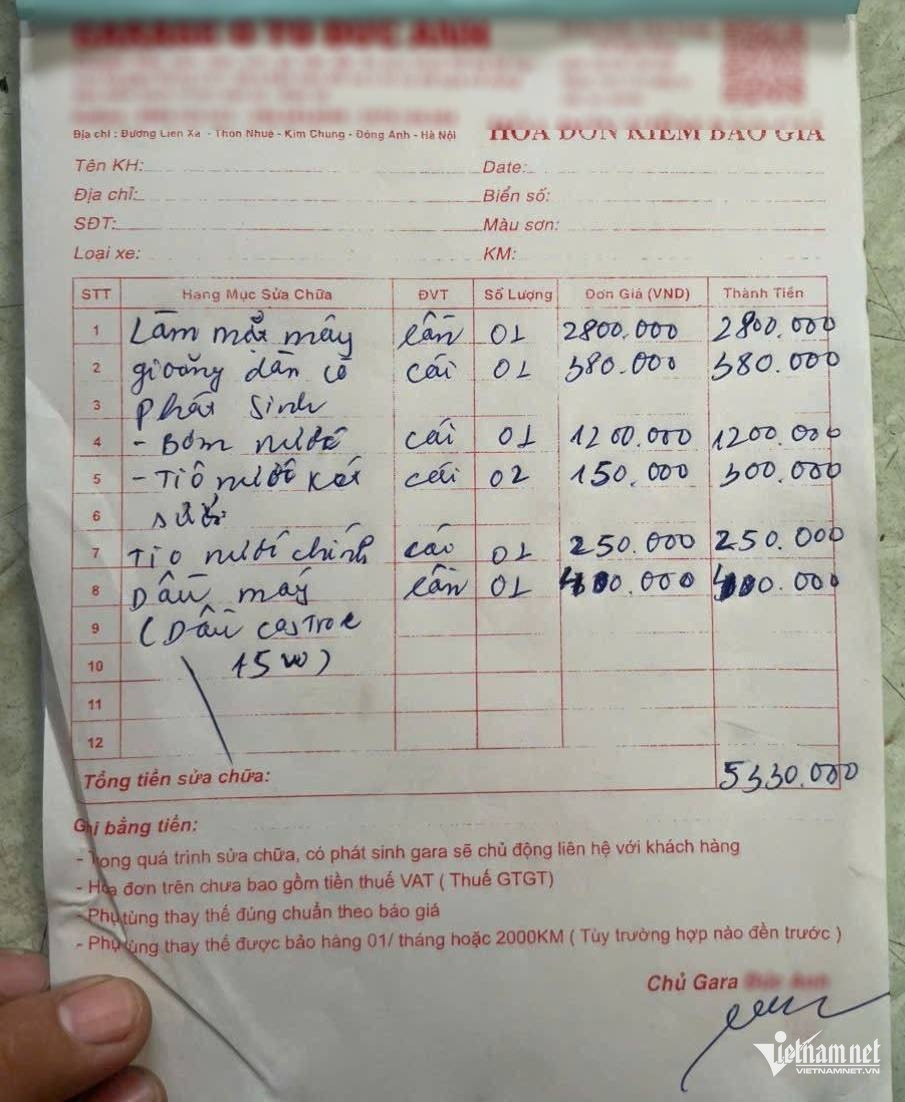 Địa chỉ : Đường Liên Xã - Thôn Nhuế - Kim Chung - Đông Anh - Hà Nội
HÓA ĐƠN KIÊM BÁO GIÁ
Tên KH: Date:
Địa chỉ: Biển số:
SĐT: Màu sơn:
Loại xe: KM:
STT Hạng Mục Sửa Chữa ĐVT Số Lượng Đơn Giá (VND) Thành Tiền
1 Làm mặt máy lần 01 2800.000 2800.000
2 gioăng dàn cò cái 01 380.000 380.000
3 phát sinh
4 - Bơm nước cái 01 1200.000 1200.000
5 - Tio nước két cái 02 150.000 300.000
6 sưởi
7 Tio nước chính cái 01 250.000 250.000
8 Dầu máy lần 01
9 ( Dầu castrol
10 15W )
11
12
Tổng tiền sửa chữa: 5330.000
Ghi bằng tiền:
- Trong quá trình sửa chữa, có phát sinh gara sẽ chủ động liên hệ với khách hàng
- Hóa đơn trên chưa bao gồm tiền thuế VAT ( Thuế GTGT)
- Phụ tùng thay thế đúng chuẩn theo báo giá
- Phụ tùng thay thế được bảo hàng 01/ tháng hoặc 2000KM ( Tùy trường hợp nào đền trước )
Chủ Gara
Vietnamnet
VIETNAMNET.VN